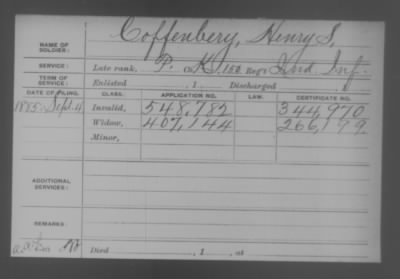 Coffenbery, Henry S,
NAME OF SOLDIER:
SERVICE: Late rank, P. Co. K, 152 Reg't Ind. Inf.
TERM OF SERVICE: Enlisted , 1 Discharged , 1
DATE OF FILING. CLASS. APPLICATION NO. LAW. CERTIFICATE NO.
1885 Sept. 4 Invalid, 548,782 344,970
Widow, 407,144 266,199
Minor,
ADDITIONAL SERVICES:
REMARKS:
Died , 1 , at